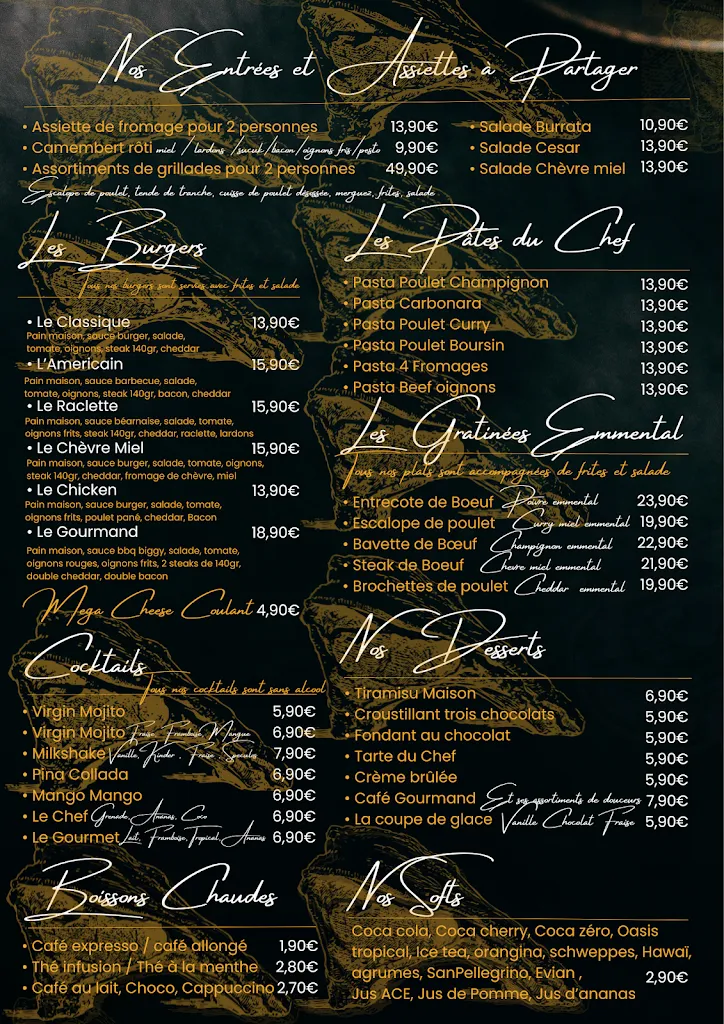 Nos Entrées et Assiettes à Partager
• Assiette de fromage pour 2 personnes 13,90€
• Camembert rôti miel / lardons /sucuk/bacon/oignons fris/pesto 9,90€
• Assortiments de grillades pour 2 personnes 49,90€
Escalope de poulet, tende de tranche, cuisse de poulet désossée, merguez, frites, salade
• Salade Burrata 10,90€
• Salade Cesar 13,90€
• Salade Chèvre miel 13,90€
Les Burgers
Tous nos burgers sont servies avec frites et salade
• Le Classique 13,90€
Pain maison, sauce burger, salade,
tomate, oignons, steak 140gr, cheddar
• L'Americain 15,90€
Pain maison, sauce barbecue, salade,
tomate, oignons, steak 140gr, bacon, cheddar
• Le Raclette 15,90€
Pain maison, sauce béarnaise, salade, tomate,
oignons frits, steak 140gr, cheddar, raclette, lardons
• Le Chèvre Miel 15,90€
Pain maison, sauce burger, salade, tomate, oignons,
steak 140gr, cheddar, fromage de chèvre, miel
• Le Chicken 13,90€
Pain maison, sauce burger, salade, tomate,
oignons frits, poulet pané, cheddar, Bacon
• Le Gourmand 18,90€
Pain maison, sauce bbq biggy, salade, tomate,
oignons rouges, oignons frits, 2 steaks de 140gr,
double cheddar, double bacon
Mega Cheese Coulant 4,90€
Les Pâtes du Chef
• Pasta Poulet Champignon 13,90€
• Pasta Carbonara 13,90€
• Pasta Poulet Curry 13,90€
• Pasta Poulet Boursin 13,90€
• Pasta 4 Fromages 13,90€
• Pasta Beef oignons 13,90€
Les Gratinées Emmental
Tous nos plats sont accompagnées de frites et salade
• Entrecote de Boeuf Poivre emmental 23,90€
• Escalope de poulet Curry miel emmental 19,90€
• Bavette de Bœuf Champignon emmental 22,90€
• Steak de Boeuf Chevre miel emmental 21,90€
• Brochettes de poulet Cheddar emmental 19,90€
Cocktails
Tous nos cocktails sont sans alcool
• Virgin Mojito 5,90€
• Virgin Mojito Fraise, Framboise, Mangue 6,90€
• Milkshake Vanille, Kinder , Fraise , Speculos 7,90€
• Pina Collada 6,90€
• Mango Mango 6,90€
• Le Chef Grenade, Ananas, Coco 6,90€
• Le Gourmet Lait, Framboise, Tropical, Ananas 6,90€
Nos Desserts
• Tiramisu Maison 6,90€
• Croustillant trois chocolats 5,90€
• Fondant au chocolat 5,90€
• Tarte du Chef 5,90€
• Crème brûlée 5,90€
• Café Gourmand Et ses assortiments de douceurs 7,90€
• La coupe de glace Vanille Chocolat Fraise 5,90€
Boissons Chaudes
• Café expresso / café allongé 1,90€
• Thé infusion / Thé à la menthe 2,80€
• Café au lait, Choco, Cappuccino 2,70€
Nos Softs
Coca cola, Coca cherry, Coca zéro, Oasis
tropical, Ice tea, orangina, schweppes, Hawaï,
agrumes, SanPellegrino, Evian , 2,90€
Jus ACE, Jus de Pomme, Jus d'ananas